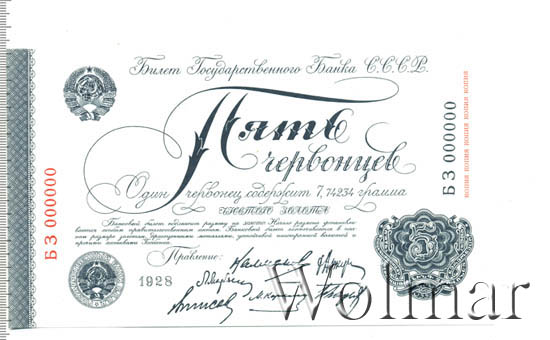 Билет Государственного Банка С.С.С.Р.
Пять
червонцев
Один червонец содержит 7,74234 грамма
чистого золота
Банковый билет подлежит размену на золото. Начало размена устанавли-
вается особым правительственным актом. Банковые билеты обеспечиваются в пол-
ном размере золотом, драгоценными металлами, устойчивой иностранной валютой и
прочими активами Госбанка.
Правление:
1928
5
БЗ 000000
БЗ 000000
копия копия копия копия копия копия
Wolmar